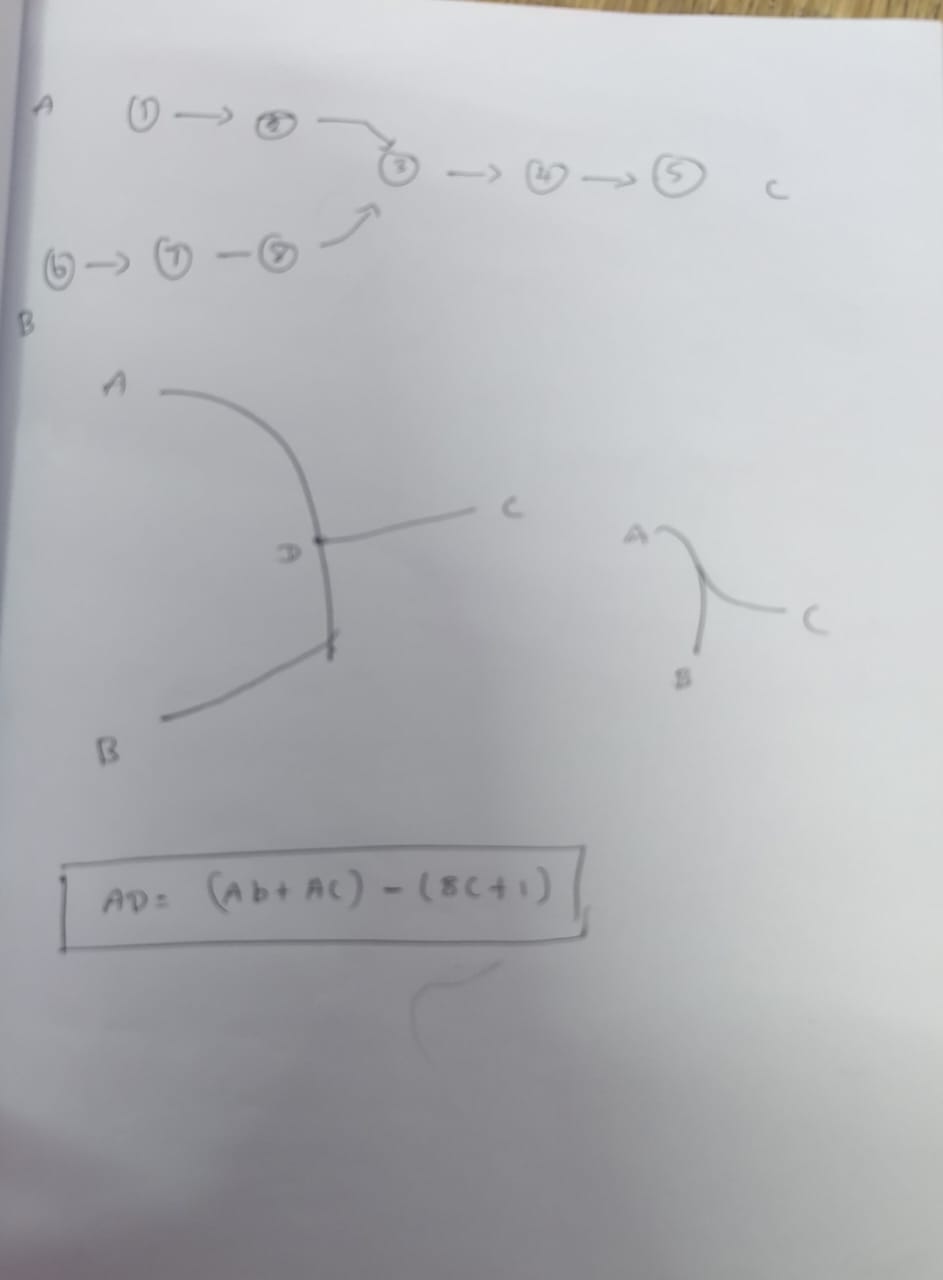 A ① → ② → ③ → ④ → ⑤ C
⑥ → ⑦ - ⑧
B
A
C
D
A
C
B
B
AD = (Ab + AC) - (BC + 1)